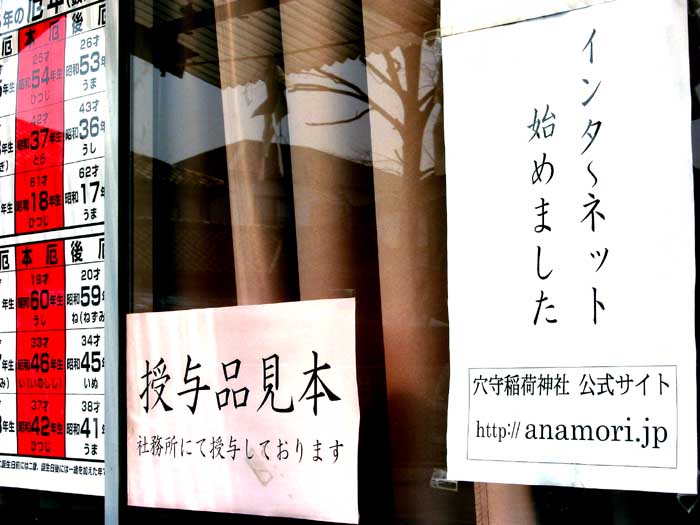 年の厄年
厄 本厄 後厄
25才 26才
昭和54年生 昭和53
ひつじ うま
42才 43才
昭和37年生 昭和36
とら うし
61才 62才
昭和18年生 昭和17
ひつじ うま
厄 本厄 後厄
19才 20才
昭和60年生 昭和59
うし ね(ねずみ
33才 34才
昭和46年生 昭和45
い(いのしし) いぬ
37才 38才
昭和42年生 昭和41
ひつじ うま
授与品見本
社務所にて授与しております
インタ〜ネット
始めました
穴守稲荷神社 公式サイト
http://anamori.jp